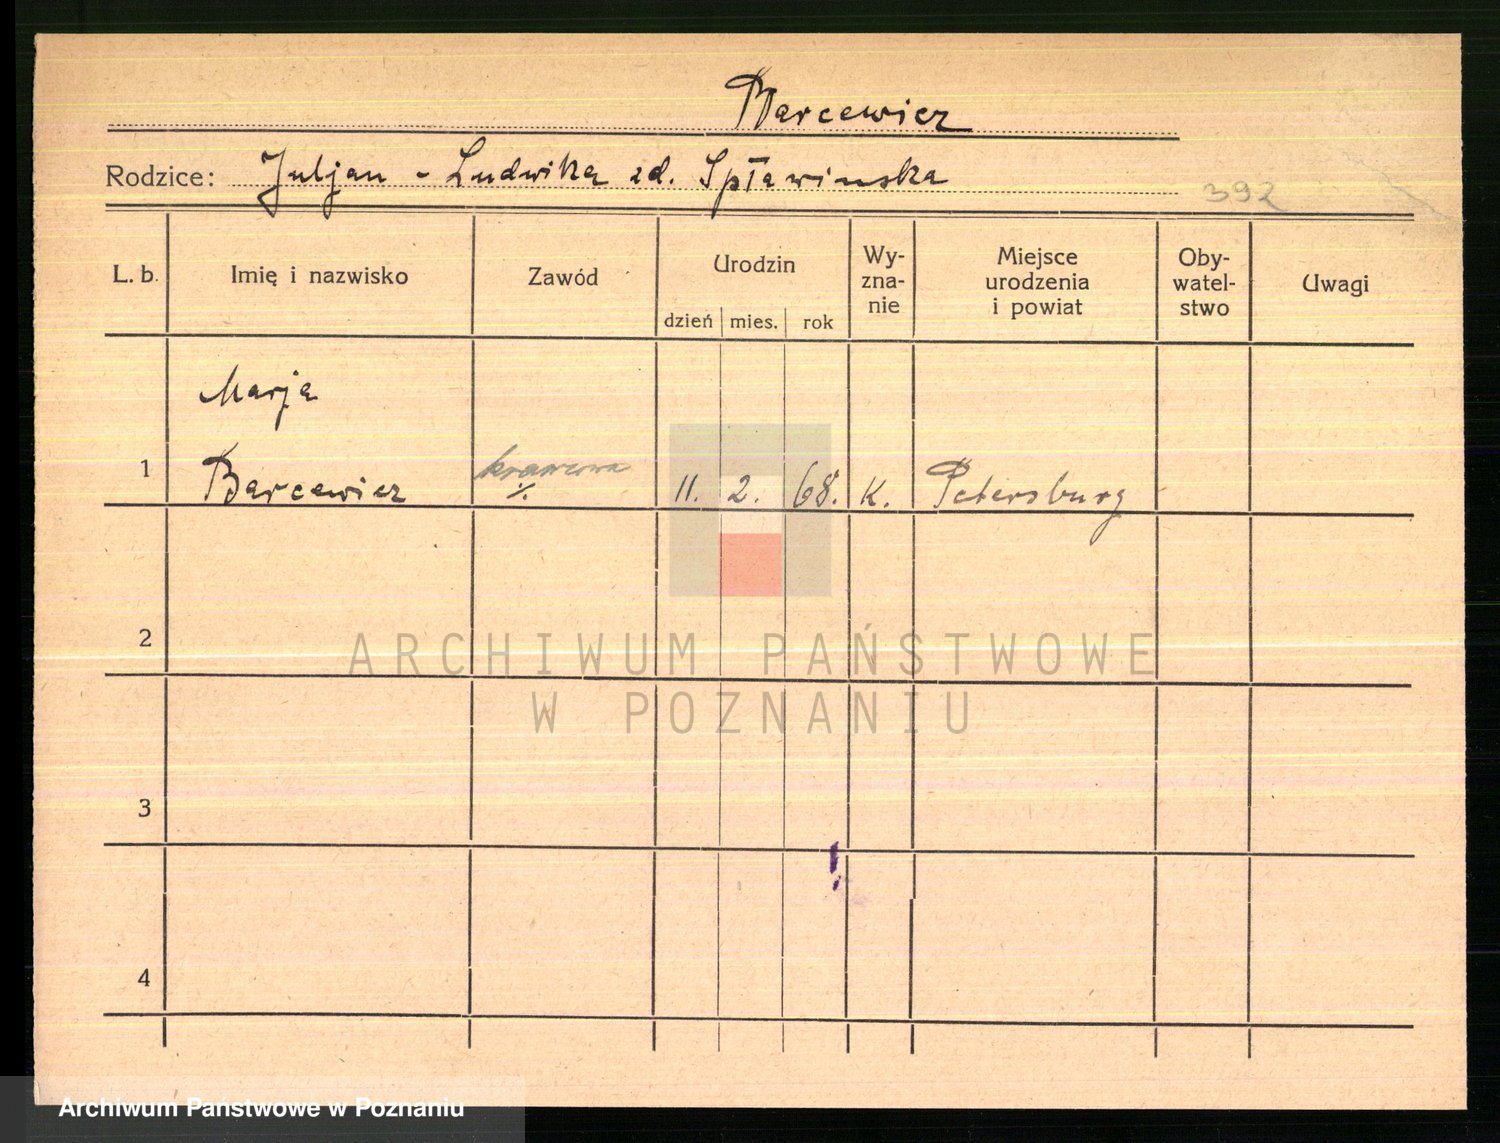 Barcewicz
Rodzice: Juljan - Ludwika zd. Spławinska
392
L. b. Imię i nazwisko Zawód Urodzin Wy-zna-nie Miejsce urodzenia i powiat Oby-watel-stwo Uwagi
dzień mies. rok
Marja
1 Barcewicz krawcowa 11. 2. 68. K. Petersburg
2
ARCHIWUM PAŃSTWOWE
W POZNANIU
3
4
Archiwum Państwowe w Poznaniu